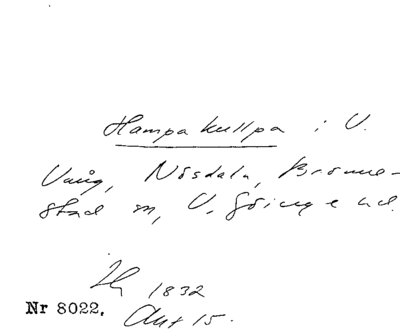 Hampakullpa i V.
Vång, Nösdala, Brönne-
stad sn, V. Göinge hd.
1832
Nr 8022. Akt 15.